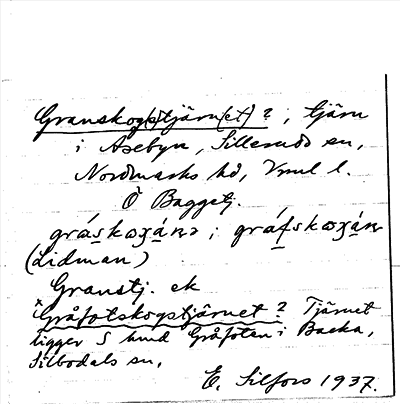 Granskog(s)tjärn(et) ? ; tjärn
i Axebyn, Sillerud sn,
Nordmarks hd, Vrml l.
Ö Baggetj.
(Lidman)
Granstj. ek
Gråfotskogstjärnet ? Tjärnet
ligger S hmd Gråfoten i Backa,
Silbodals sn.
E. Silfors 1937.